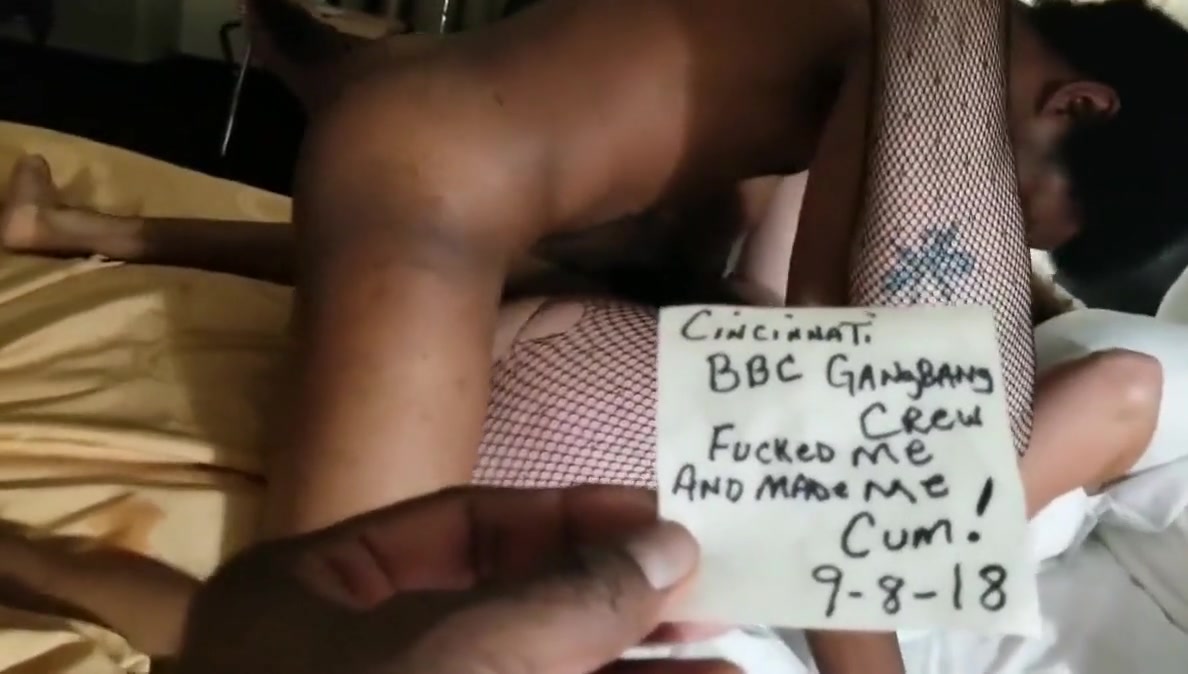 CINCINNATI
BBC GANgBANg
CREW
FUCKED ME
AND MADe Me
CUM!
9-8-18